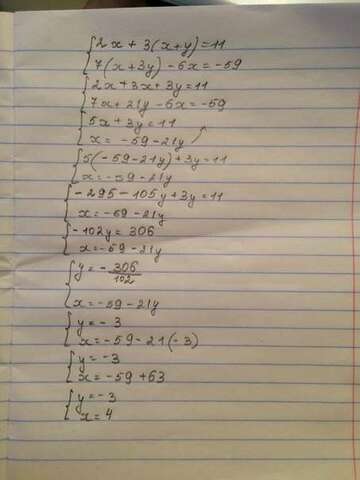 2x + 3(x+y)=11
7(x+3y)-6x=-59
2x+3x+3y=11
7x+21y-6x=-59
5x+3y=11
x= -59-21y
5(-59-21y)+3y=11
x=-59-21y
-295-105y+3y=11
x=-59-21y
-102y= 306
x=-59-21y
y=- 306/102
x=-59-21y
y=-3
x=-59-21(-3)
y=-3
x=-59+63
y=-3
x=4